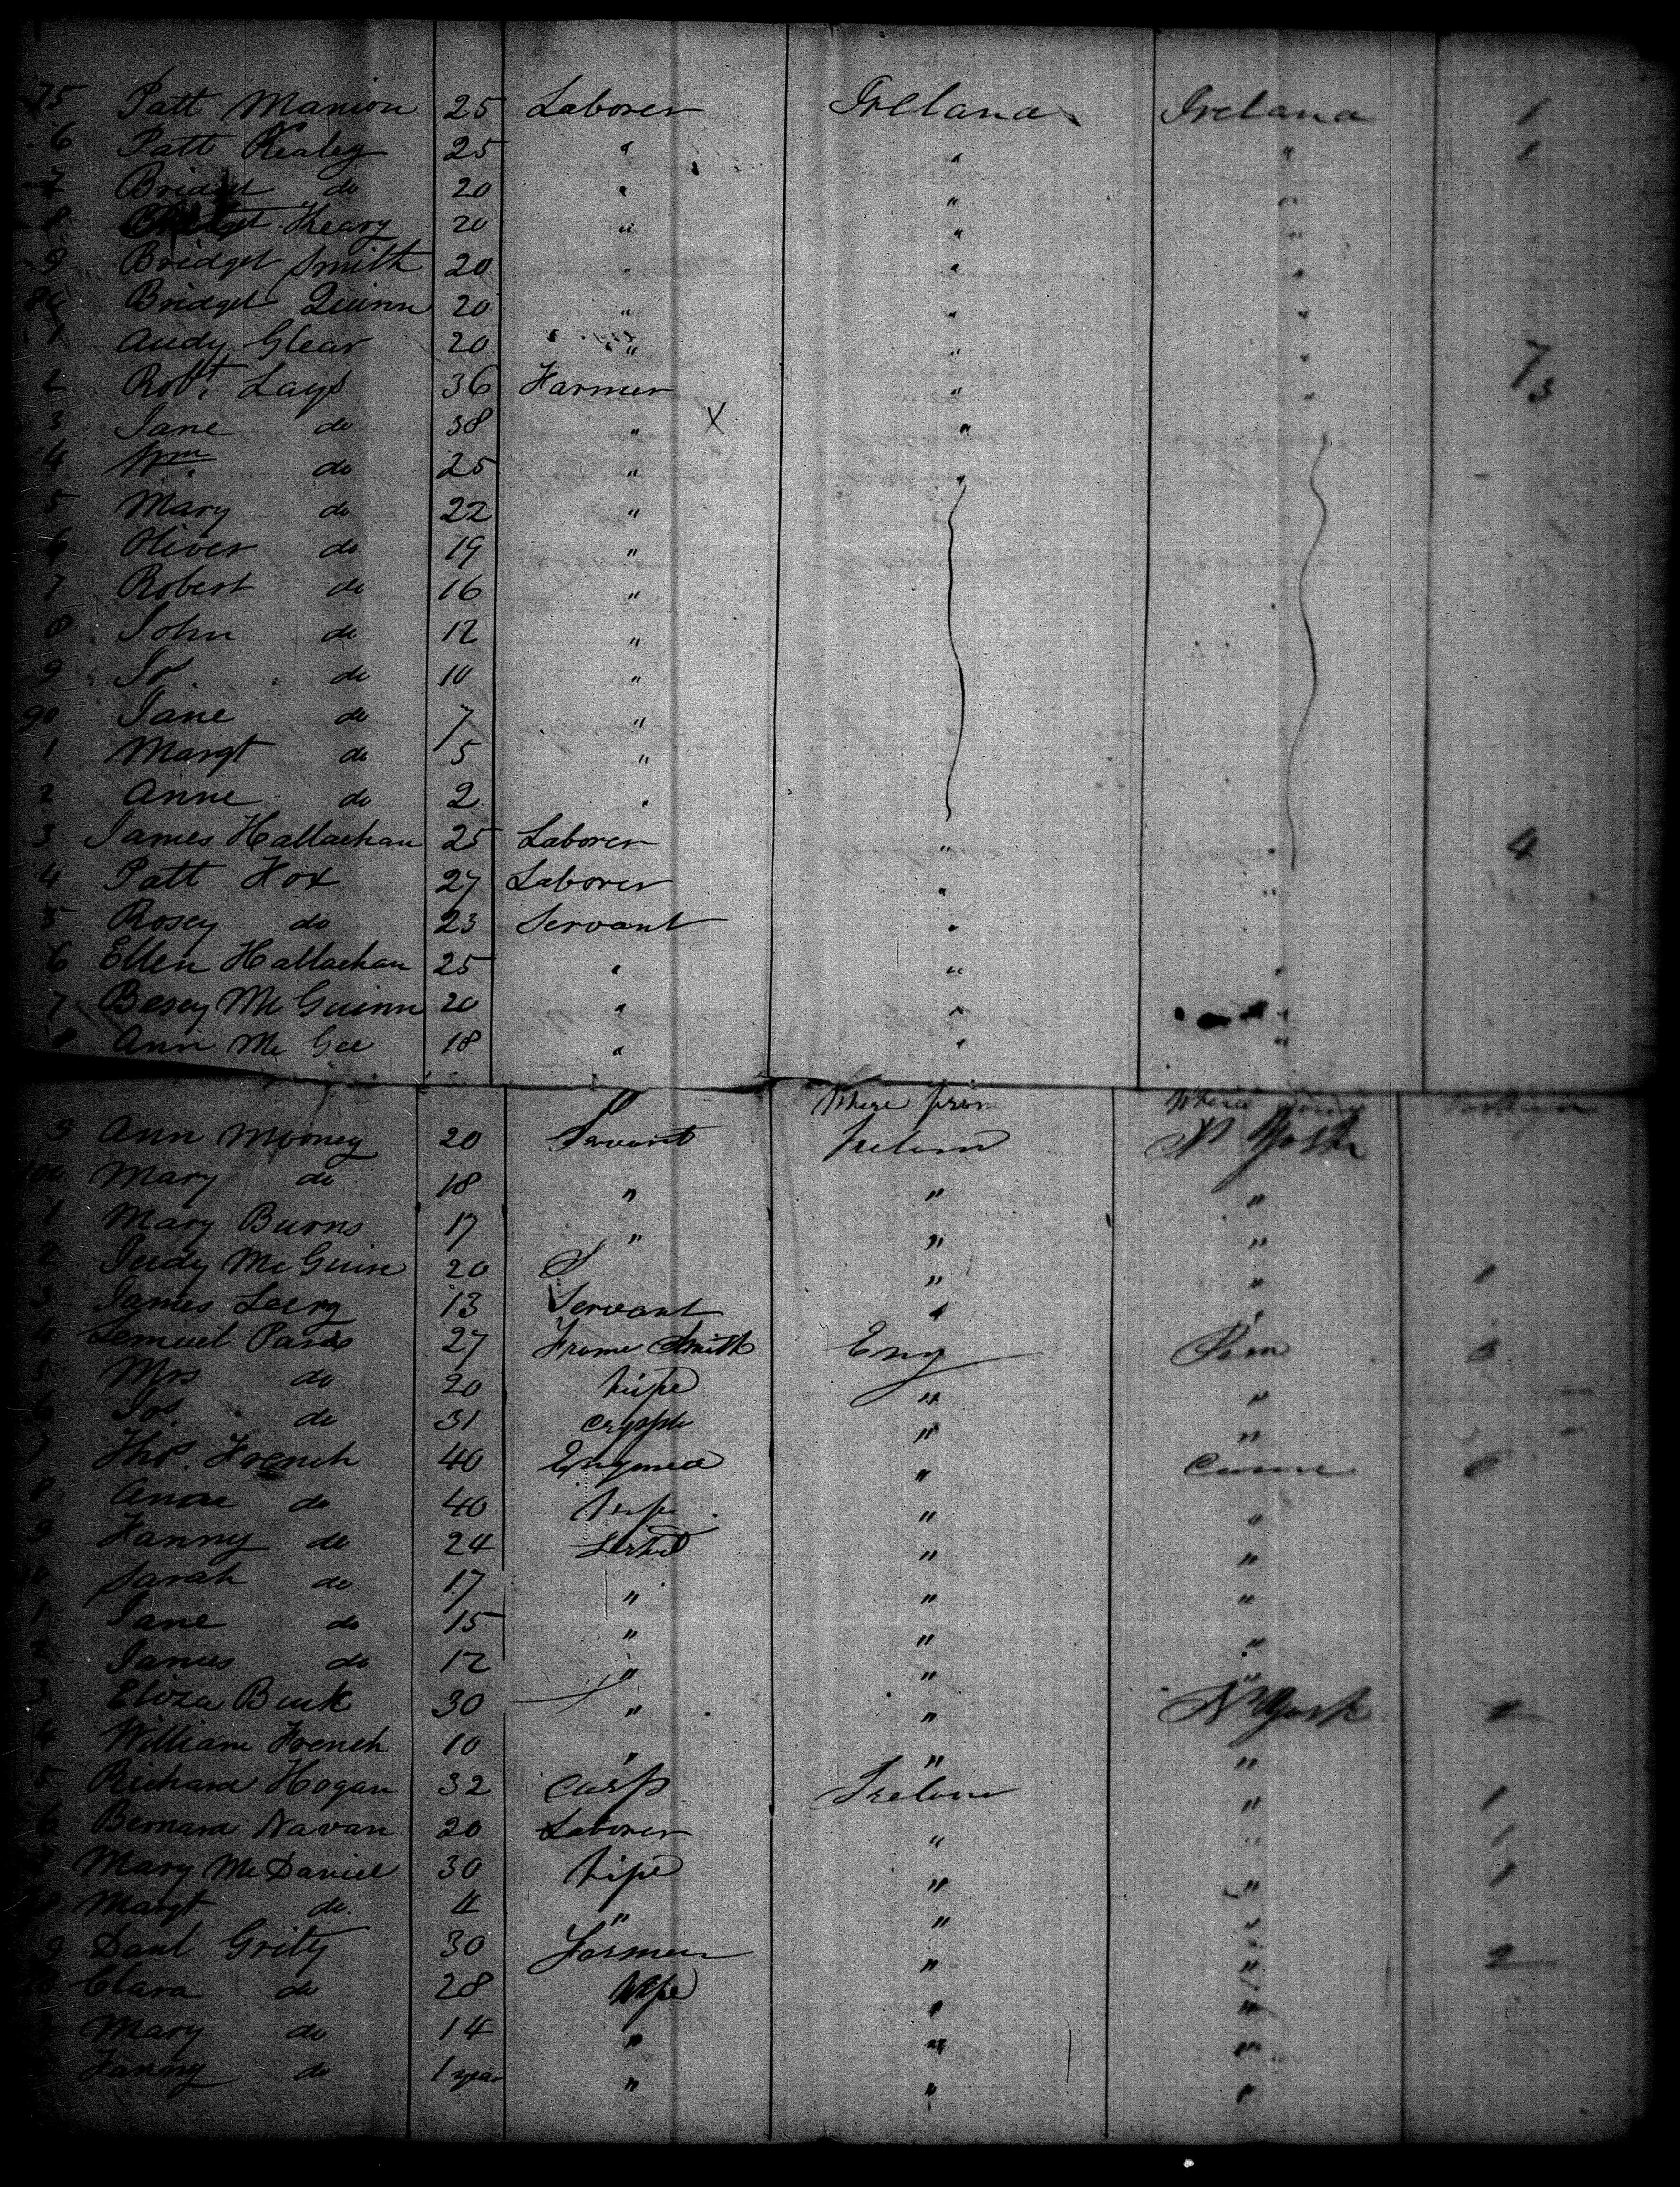 75 Patt Manion 25 Laborer Ireland Ireland 1
6 Patt Kealey 25 " " " 1
7 Bridget do 20 " " "
8 Bridget Keary 20 " " "
9 Bridget Smith 20 " " "
80 Bridget Quinn 20 " " "
1 Andy Glear 20 " " "
2 Robt. Lays 36 Farmer " " 7/3
3 Jane do 38 " X "
4 Wm. do 25 " "
5 Mary do 22 "
6 Oliver do 19 "
7 Robert do 16 "
8 John do 12 "
9 Js. do 10 "
90 Jane do 7 "
1 Margt do 5 "
2 Anne do 2 "
3 James Hallachan 25 Laborer " 4
4 Patt Fox 27 Laborer " "
5 Rosey do 23 Servant "
6 Ellen Hallachan 25 " " "
7 Besey Mc Guinn 20 " " "
8 Ann Mc Gee 18 " " "
Where from Where
9 Ann Mooney 20 Servant Ireland N York
100 Mary do 18 " " "
1 Mary Burns 17 " " "
2 Judy Mc Guire 20 S " " 1
3 James Leery 13 Servant " "
4 Lemuel Paris 27 Frame Smith Eng Pen 3
5 Mrs do 20 wife " "
6 Jos. do 31 " "
7 Thos. French 40 Engineer " Conn 6
8 Anne do 40 wife " "
9 Fanny do 24 " "
10 Sarah do 17 " " "
1 Jane do 15 " " "
2 James do 12 " " "
3 Eliza Buck 30 " " N York 2
4 William French 10 " " "
5 Richard Hogan 32 Carp Ireland " 1
6 Bernard Navan 20 Laborer " " 1
7 Mary Mc Daniel 30 wife " " 1
8 Margt do. 4 " " "
9 Danl Grity 30 Farmer " " 2
20 Clara do 28 wife " "
Mary do 14 " " "
Fanny do 1 year " " "